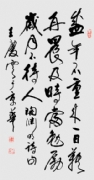 盛年不重來一日難
再晨及時當勉勵
歲月不待人陶淵明詩
王慶雲京華